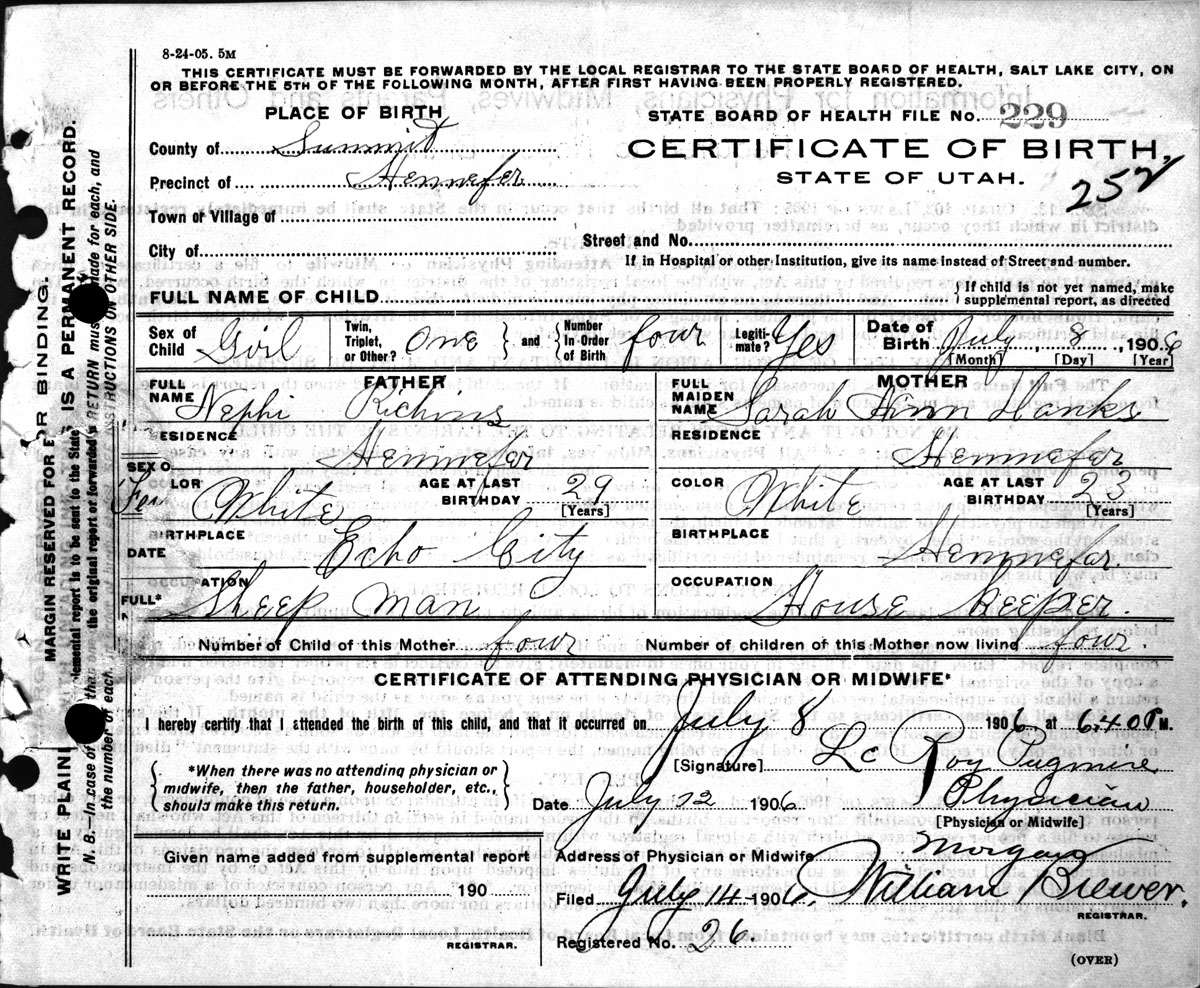 8-24-05. 5M
THIS CERTIFICATE MUST BE FORWARDED BY THE LOCAL REGISTRAR TO THE STATE BOARD OF HEALTH, SALT LAKE CITY, ON
OR BEFORE THE 5TH OF THE FOLLOWING MONTH, AFTER FIRST HAVING BEEN PROPERLY REGISTERED.
PLACE OF BIRTH
STATE BOARD OF HEALTH FILE No. 229
County of Summit
CERTIFICATE OF BIRTH,
Precinct of Hennefer
STATE OF UTAH.
252
Town or Village of
Street and No.
City of
If in Hospital or other Institution, give its name instead of Street and number.
FULL NAME OF CHILD
{If child is not yet named, make
supplemental report, as directed
Sex of Child Girl Twin, Triplet, or Other? One } and { Number In Order of Birth four Legitimate? Yes Date of Birth July 8, 1906
[Month] [Day] [Year]
FATHER
FULL NAME Nephi Richins
RESIDENCE Hennefer
SEX O
Fem
LOR White AGE AT LAST BIRTHDAY 29
[Years]
BIRTHPLACE Echo City
DATE
ATION Sheep Man
FULL*
MOTHER
FULL MAIDEN NAME Sarah Ann Hanks
RESIDENCE Hennefer
COLOR White AGE AT LAST BIRTHDAY 23
[Years]
BIRTHPLACE Hennefer.
OCCUPATION House Keeper.
Number of Child of this Mother four Number of children of this Mother now living four.
CERTIFICATE OF ATTENDING PHYSICIAN OR MIDWIFE*
I hereby certify that I attended the birth of this child, and that it occurred on July 8 1906 at 6.40 P M.
{*When there was no attending physician or
midwife, then the father, householder, etc.,
should make this return.}
[Signature] Le Roy Pugmire
Date July 12 1906. Physician
[Physician or Midwife]
Given name added from supplemental report
190
REGISTRAR.
Address of Physician or Midwife Morgan
Filed July 14 1906, William Brewer.
REGISTRAR.
Registered No. 26.
(OVER)
MARGIN RESERVED FOR BINDING.
WRITE PLAINL
IS A PERMANENT RECORD.
N. B.—In case of
the number of each.
emental report is to be sent to the State
the original report or forwarded
RETURN mus
made for each, and
INSTRUCTIONS ON OTHER SIDE.